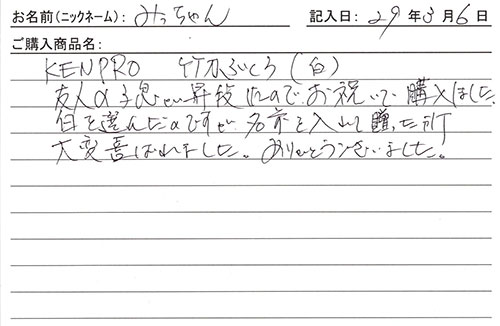 お名前(ニックネーム): みっちゃん 記入日: 29年3月6日
ご購入商品名:
KENPRO 竹刀ぶくろ (白)
友人の子息が昇段したので、お祝いで購入しました
白を選んだのですが名前を入れて贈った所
大変喜ばれました。ありがとうございました。